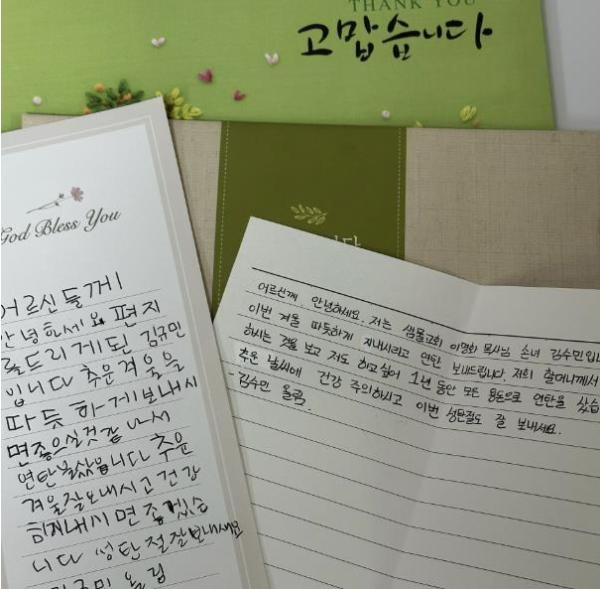 THANK YOU
고맙습니다
God Bless You
어르신들께
안녕하세요 편지
를드리게된 김규민
입니다 추운겨울을
따뜻하게보내시
면좋으실것같아서
연탄불샀읍니다 추운
겨울잘보내시고 건강
히지내시면 좋겠습
니다 성탄절잘보내세요
김규민 올림
어르신께. 안녕하세요. 저는 샘물교회 이명화 목사님 손녀 김수민입니
이번 겨울 따뜻하게 지내시라고 연탄 보내드립니다. 저희 할머니께서
하시는 것을 보고 저도 하고싶어 1년 동안 모은 용돈으로 연탄을 샀습
추운 날씨에 건강 주의하시고 이번 성탄절도 잘 보내세요.
- 김수민 올림.